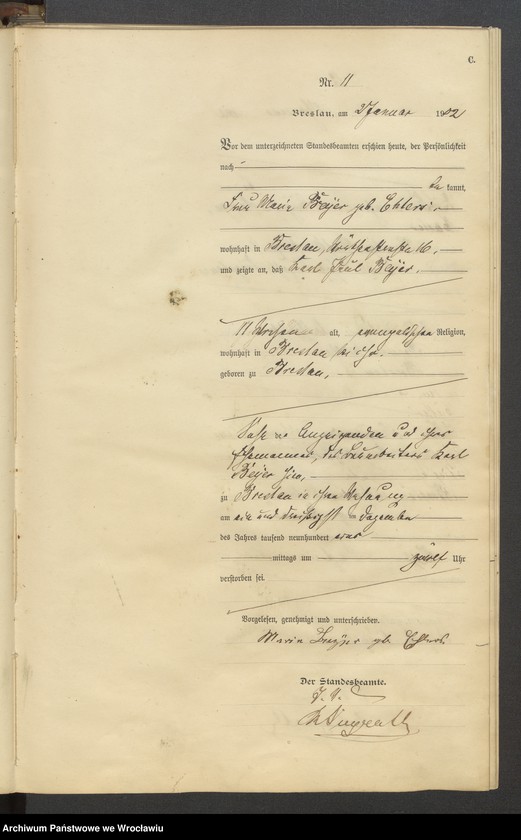 C.
Nr. 11
Breslau, am 2 Januar 1902
Vor dem unterzeichneten Standesbeamten erschien heute, der Persönlichkeit
nach
be kannt,
Frau Maria Beyer geb. Ehlers
wohnhaft in Breslau, 16,
und zeigte an, daß Karl Paul Beyer,
11 Wochen alt, evangelischer Religion,
wohnhaft in Breslau bei ihr,
geboren zu Breslau,
Sohn der Anzeigenden und ihres
Ehemannes, des Karl
Beyer hier,
zu Breslau in ihrer Wohnung
am ein und dreißigsten Dezember
des Jahres tausend neunhundert eins
mittags um zwölf Uhr
verstorben sei.
Vorgelesen, genehmigt und unterschrieben.
Maria Beyer geb. Ehlers
Der Standesbeamte.
J. V.
Archiwum Państwowe we Wrocławiu